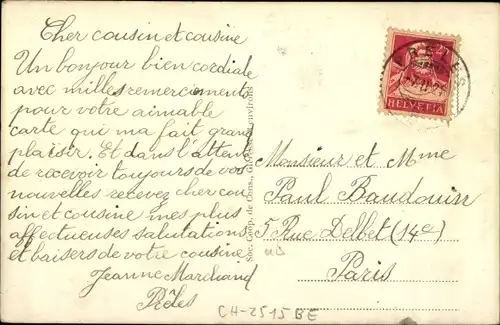 Cher cousin et cousine
Un bonjour bien cordiale
avec milles remerciements
pour votre aimable
carte qui ma fait grand
plaisir. Et dans l'attente
de recevoir toujours de vos
nouvelles recevez cher cou
sin et cousine mes plus
affectueuses salutations
et baisers de votre cousine
Jeanne Marchand
Prêles
HELVETIA
Monsieur et Mme
Paul Baudouin
5 Rue Delbet (14e)
Paris
environs
CH-2515 BE